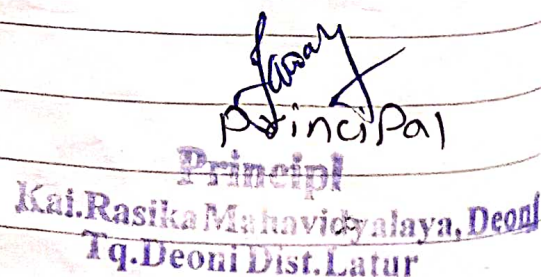 Principal
Principl
Kai.Rasika Mahavidyalaya, Deoni
Tq.Deoni Dist.Latur